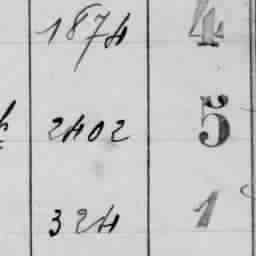 1874 4
2402 5
324 1